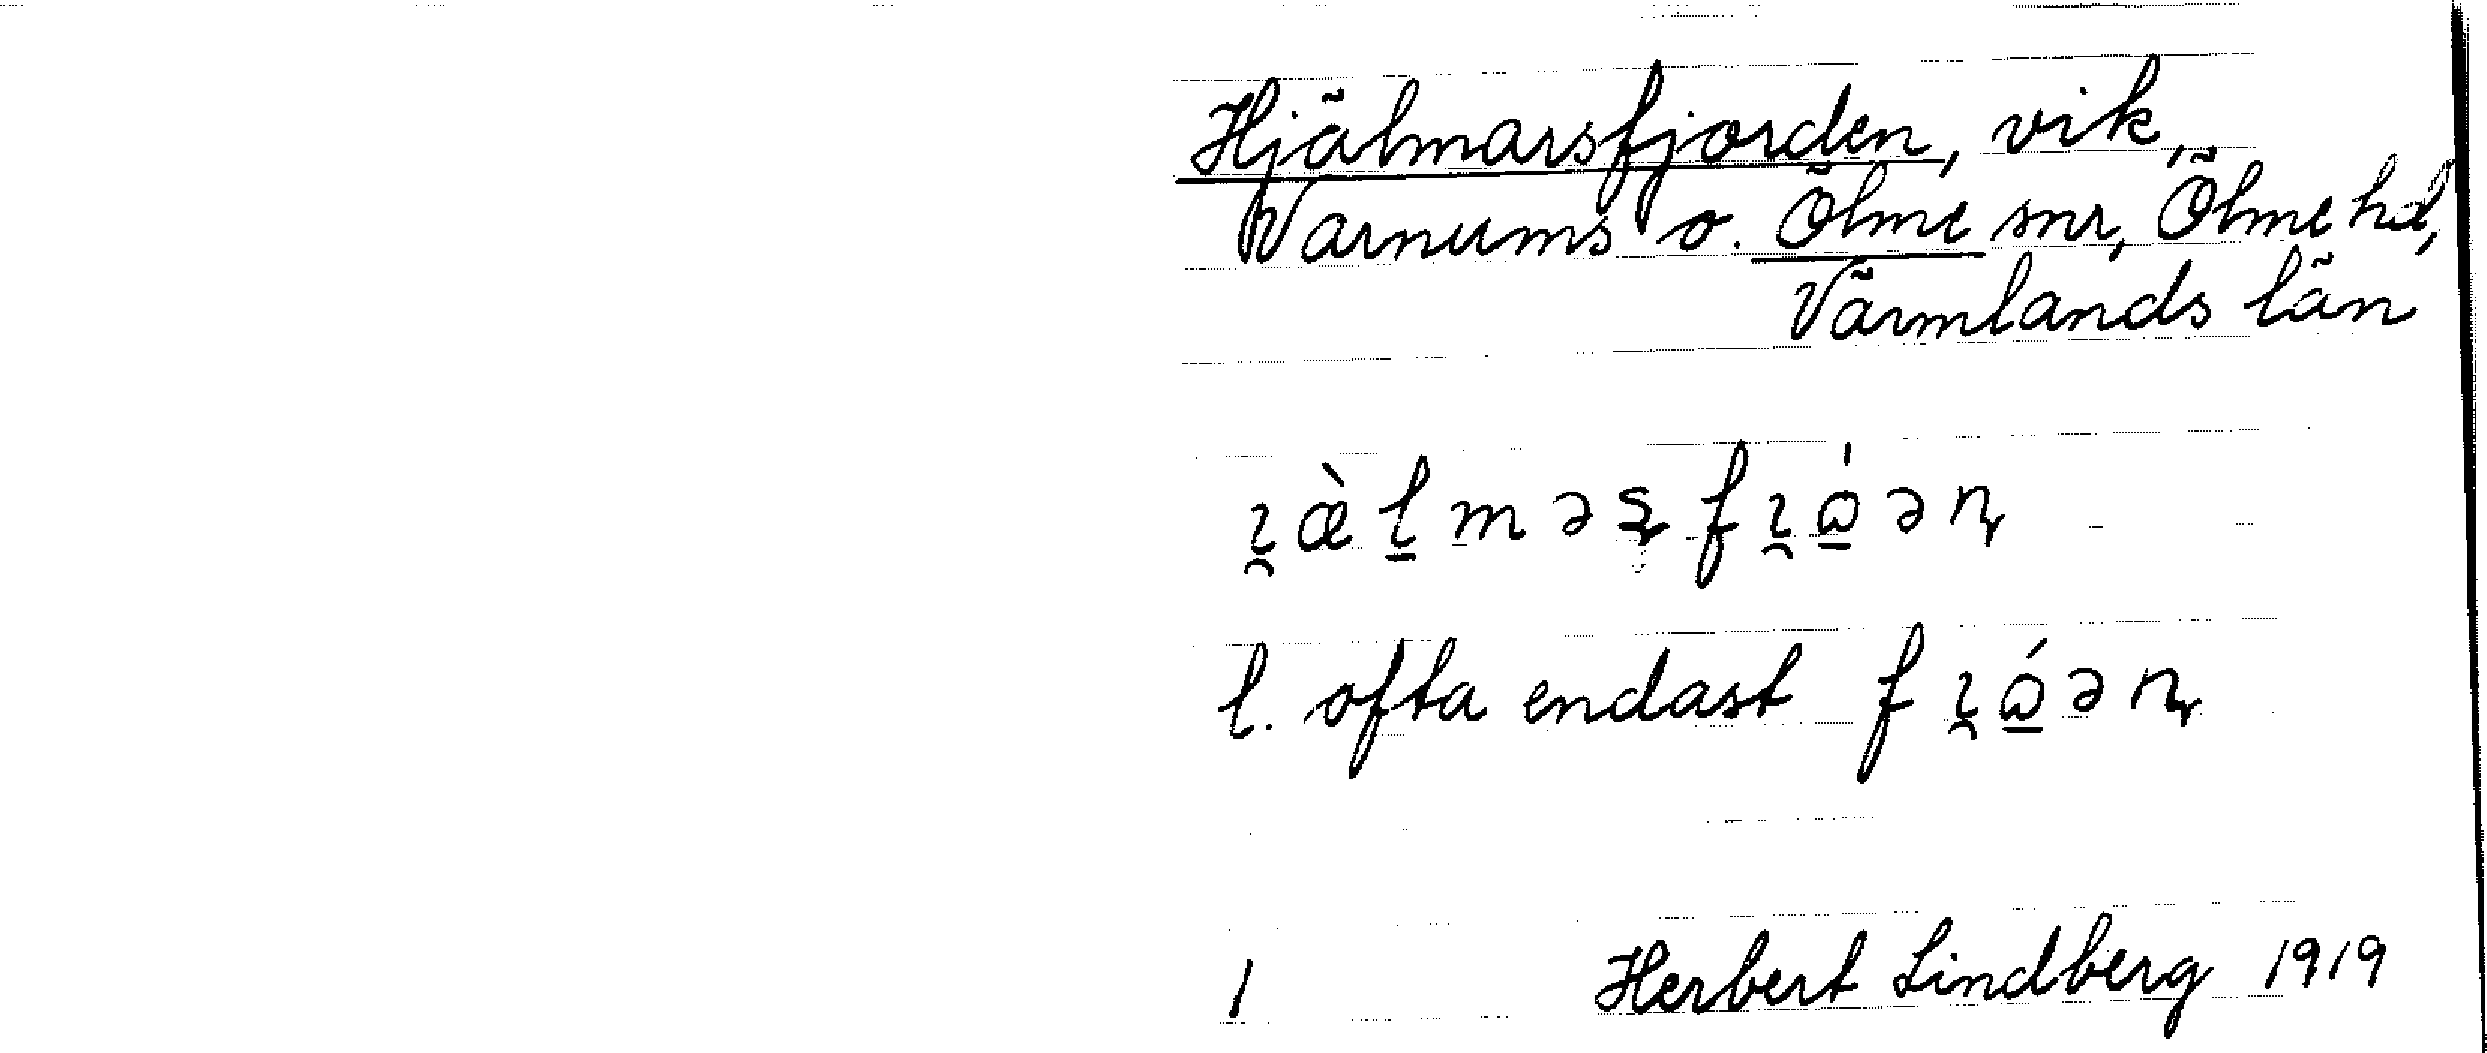 Hjälmarsfjorden, vik,
Varnums o. Ölme snr, Ölme hd,
Värmlands län
ɪ̯æ̀l̠məʂfɪ̯ɷ̠́əɳ
l. ofta endast fɪ̯ɷ̠́əɳ
1 Herbert Lindberg 1919